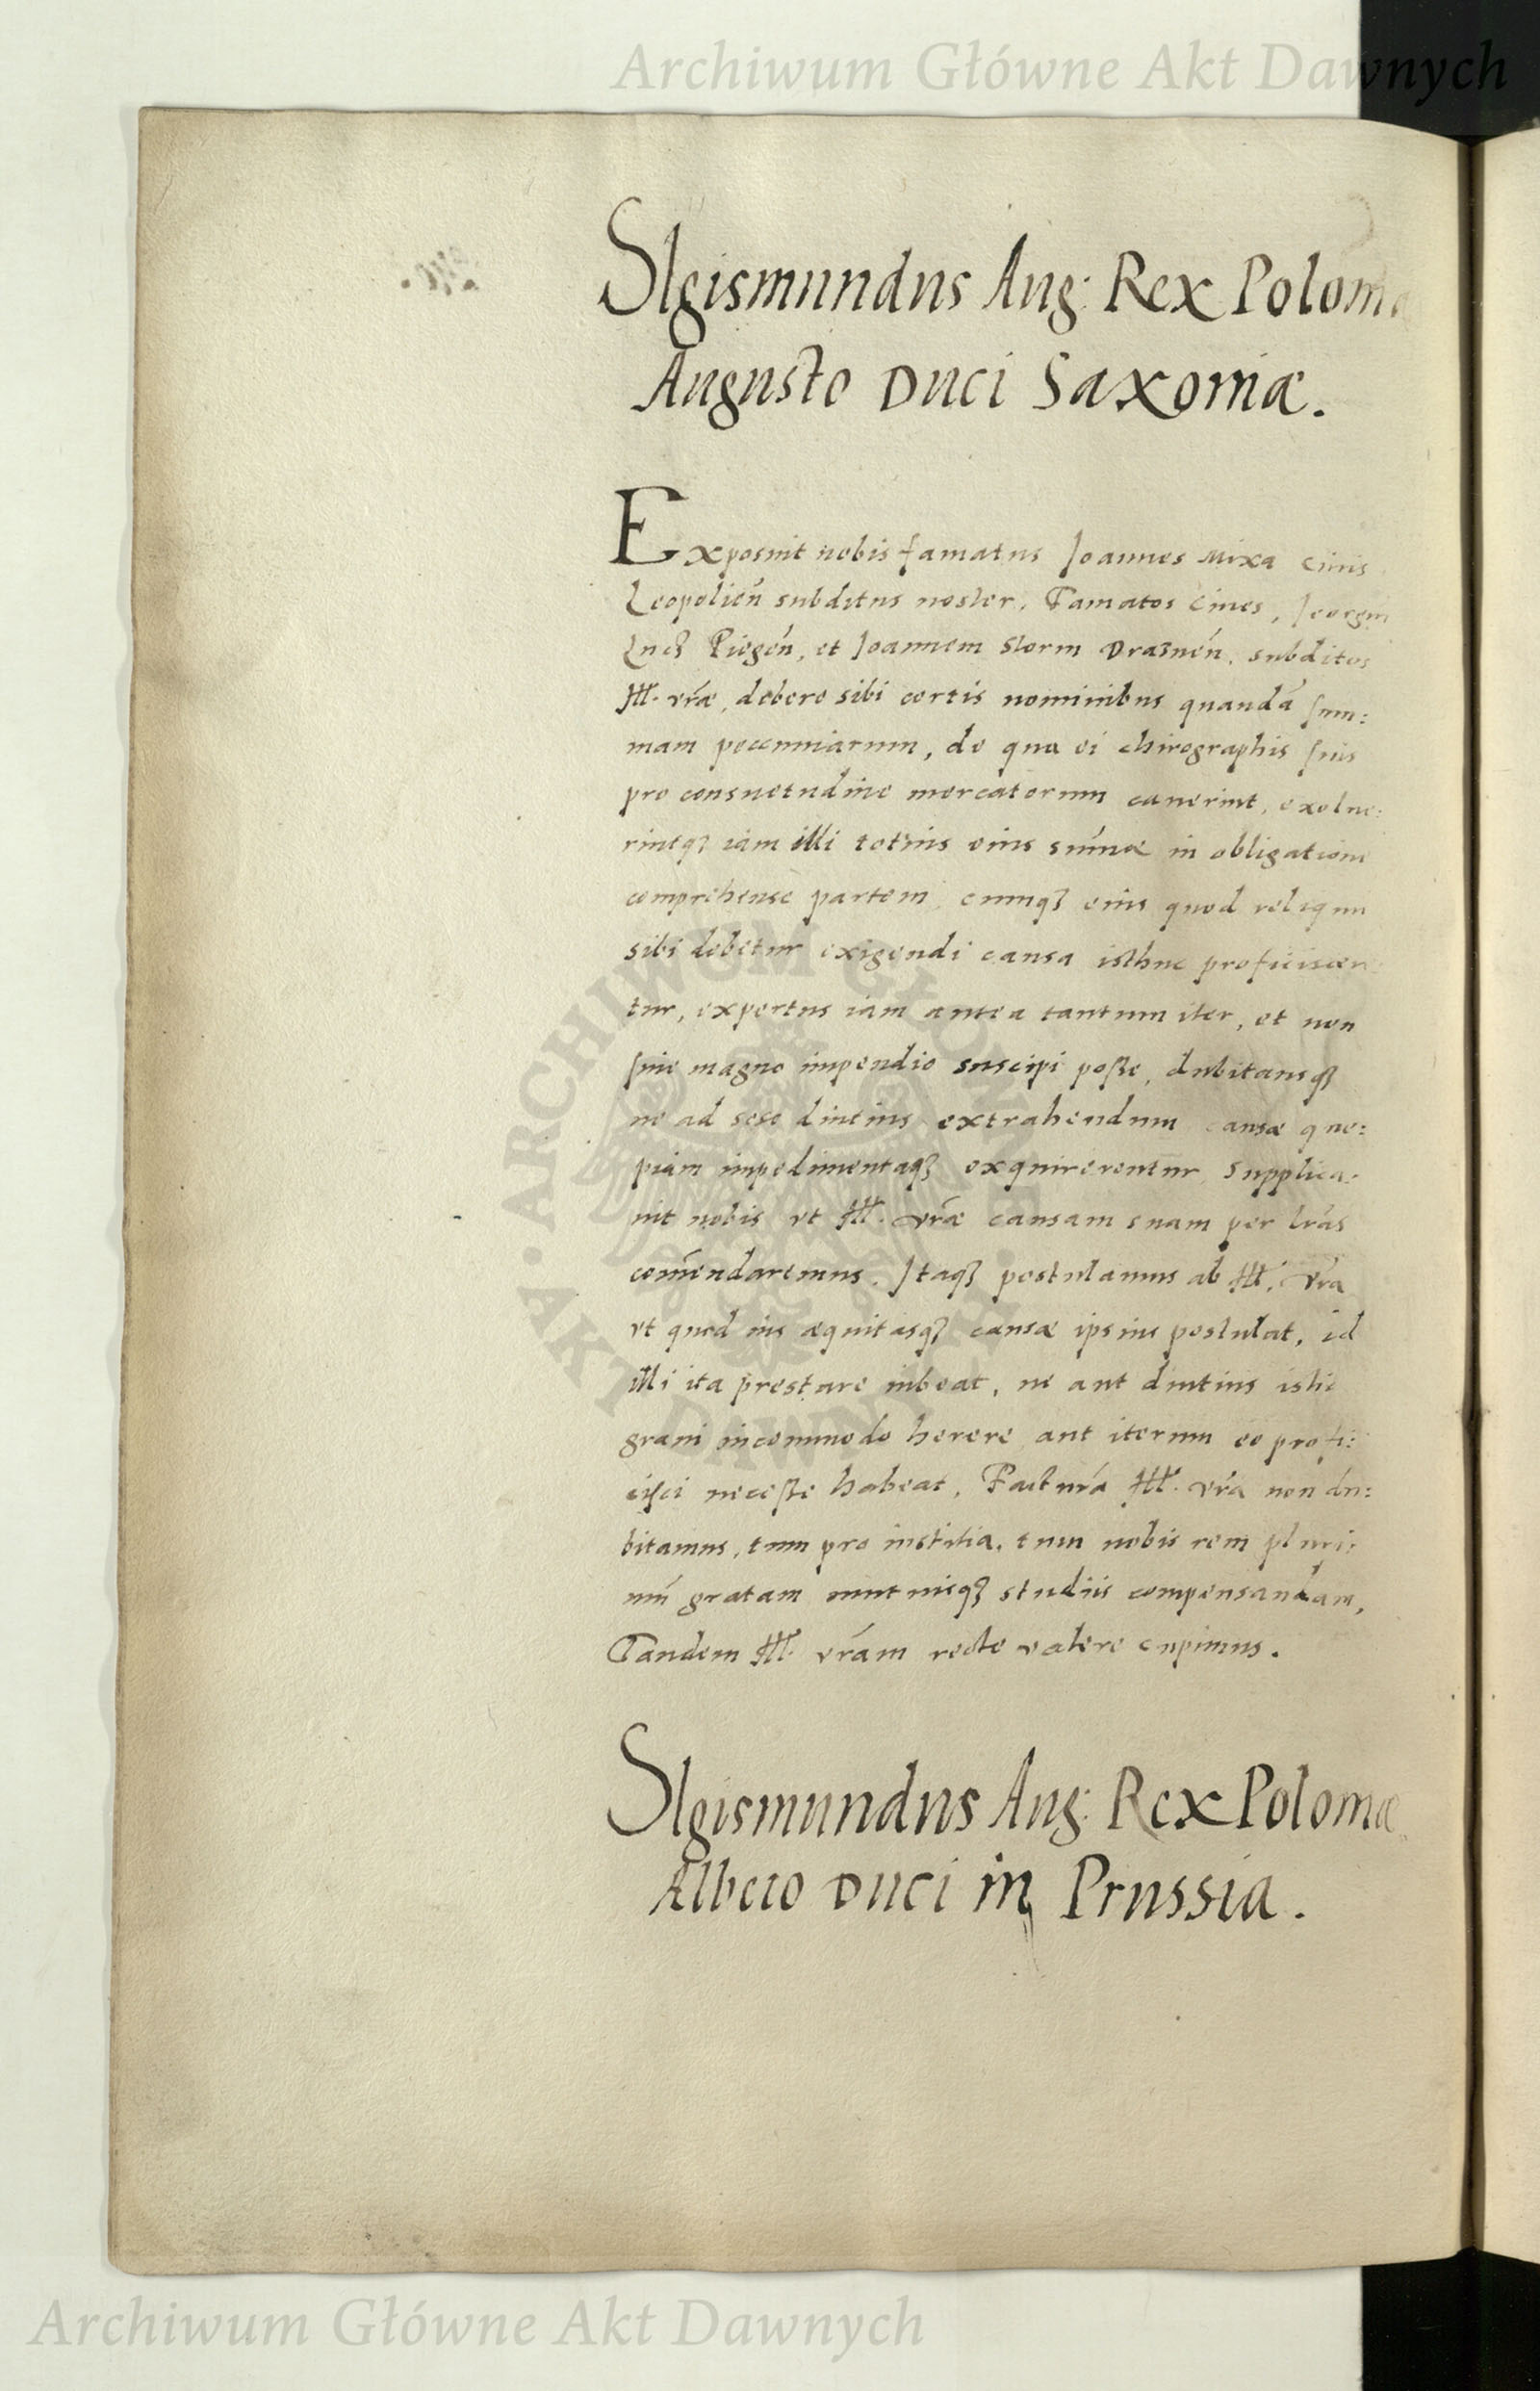 Archiwum Główne Akt Dawnych
SIgismundus Aug: Rex Polonia
Augusto Duci Saxoniæ.
Exposuit nobis famatus Joannes Mixa ciuis
Leopolień subditus noster, Famatos Ciues, Jeorgiu
Piegeń, et Joannem Storm subditos
Ill. vrǽ, debere sibi certis nominibus quandā sum:
mam pecuniarum, de qua ei chirographis suis
pro consuetudine mercatorum cauerint, exolue:
rintqʒ iam illi totius eius sum̄æ in obligatione
comprehense partem, cumqʒ eius quod reliquu
sibi debetur exigendi causa isthuc proficiscere
tur, expertus iam antea tantum iter, et non
sine magno impendio suscipi posse, dubitansqʒ
ne ad sese diutius extrahendum causæ que:
piam impedimentaqʒ exquirerentur, supplica:
uit nobis vt Ill. vrǽ causam suam per lrás
com̄endaremus. Itaqʒ postulamus ab Ill. vrá
vt quod ius æquitasqʒ causæ ipsius postulat, id
illi ita prestare iubeat, ne aut diutius istic
graui incommodo herere aut iterum eo profi:
cisci necesse habeat. Facturá Ill. vrá non du:
bitamus, tum pro iustitia, tum nobis rem pluri:
mū gratam mutuisqʒ studiis compensandam,
Tandem Ill. vrám recte valere cupimus.
SIgismundus Aug: Rex Poloniæ
Alberto Duci in Prussia.
ARCHIWUM GŁÓWNE
· AKT DAWNYCH ·
Archiwum Główne Akt Dawnych